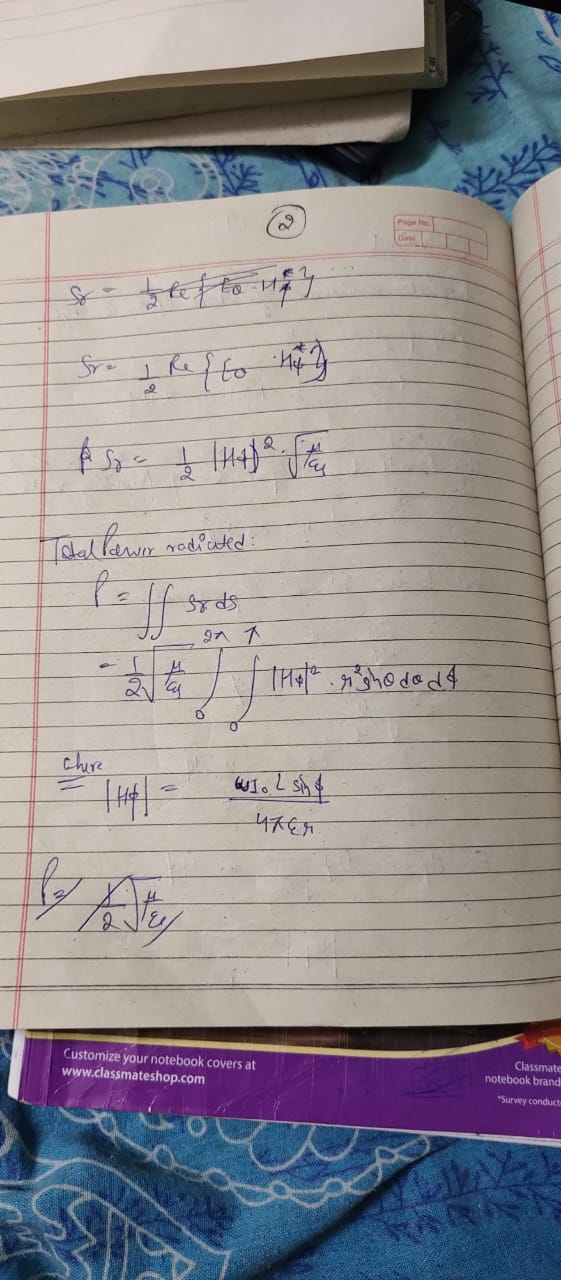 2
Page No.
Date
Sr = 1/2 Re { Eθ · Hφ* }
Sr = 1/2 Re { Eθ · Hφ* }
Sr = 1/2 |Hφ|² · √(μ/ε)
Total Power radiated:
P = ∬ Sr ds
= 1/2 √(μ/ε) ∫₀^2π ∫₀^π |Hφ|² · r² sinθ dθ dφ
|Hφ| = ωI₀L sinφ / 4πεr
P = 1/2 √(μ/ε)
Customize your notebook covers at
www.classmateshop.com
Classmate
notebook brand
*Survey conduct